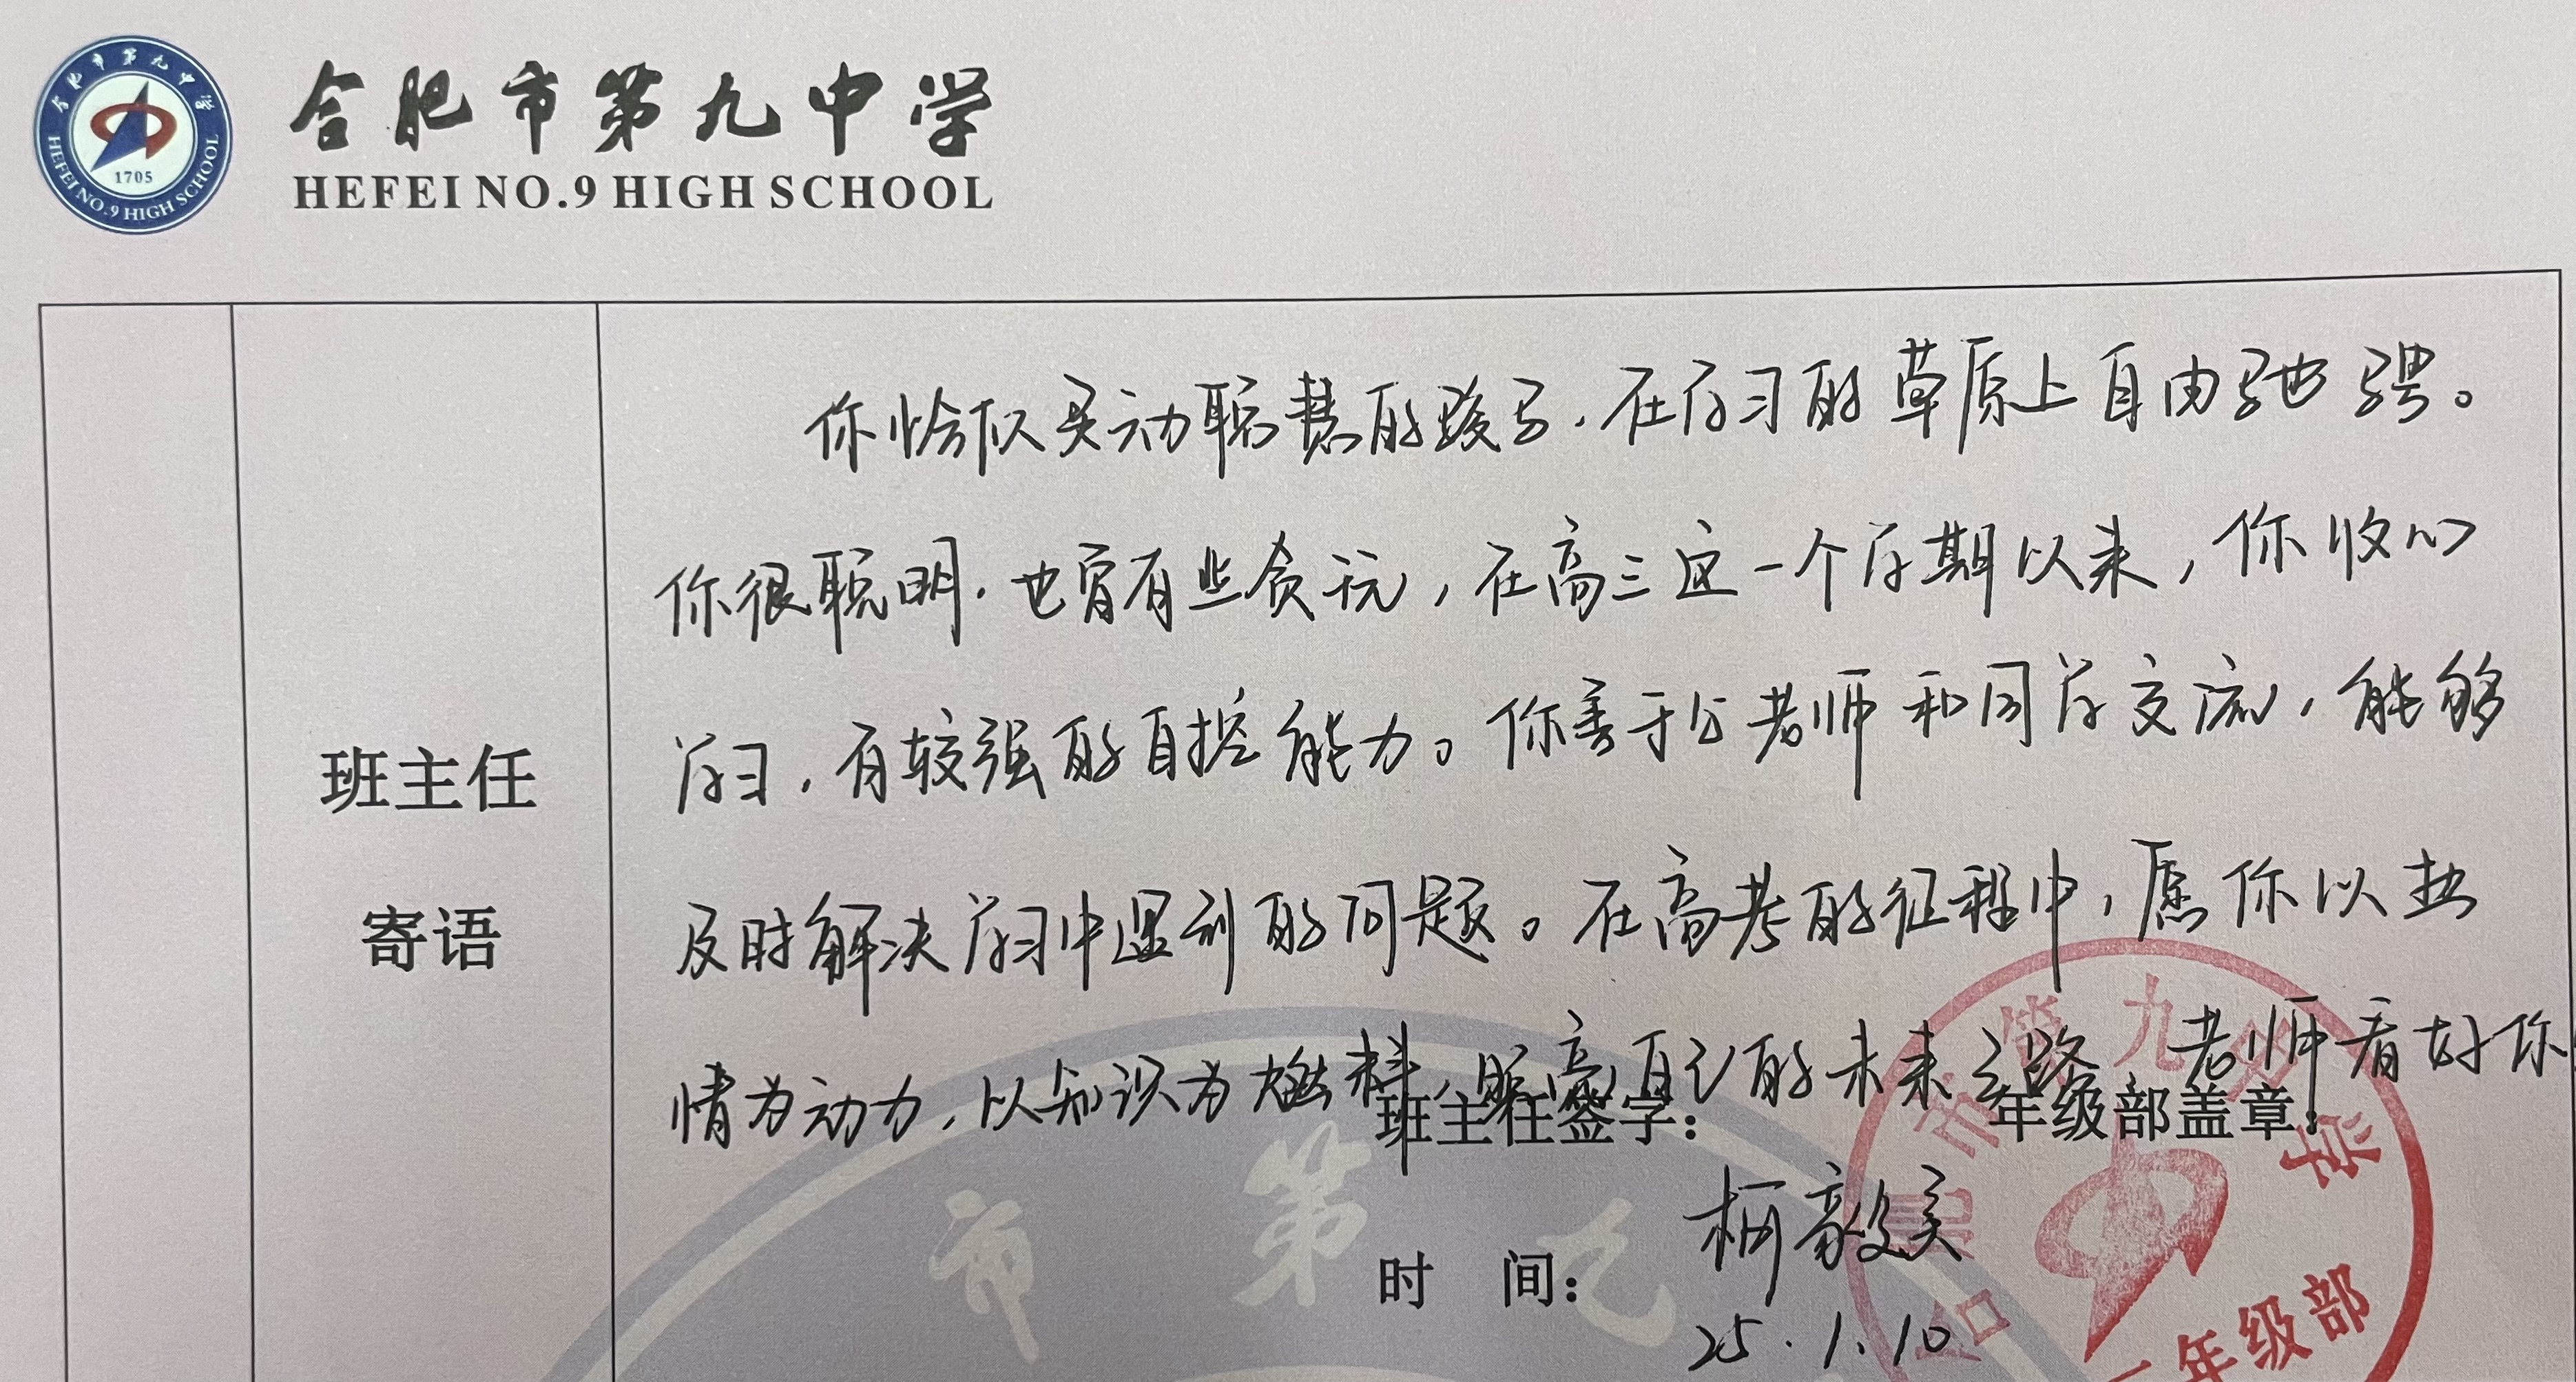 合肥市第九中学
HEFEI NO.9 HIGH SCHOOL
合肥市第九中学
1705
HEFEI NO.9 HIGH SCHOOL
班主任
寄语
你恰似灵动聪慧的骏马，在学习的草原上自由驰骋。
你很聪明，也曾有些贪玩，在高三这一个学期以来，你收心
学习，有较强的自控能力。你善于与老师和同学交流，能够
及时解决学习中遇到的问题。在高考的征程中，愿你以热
情为动力，以知识为燃料，照亮自己的未来之路 老师看好你
班主任签字：
年级部盖章：
柯毅
时 间：
25.1.10
市 第 九
第九
年级部